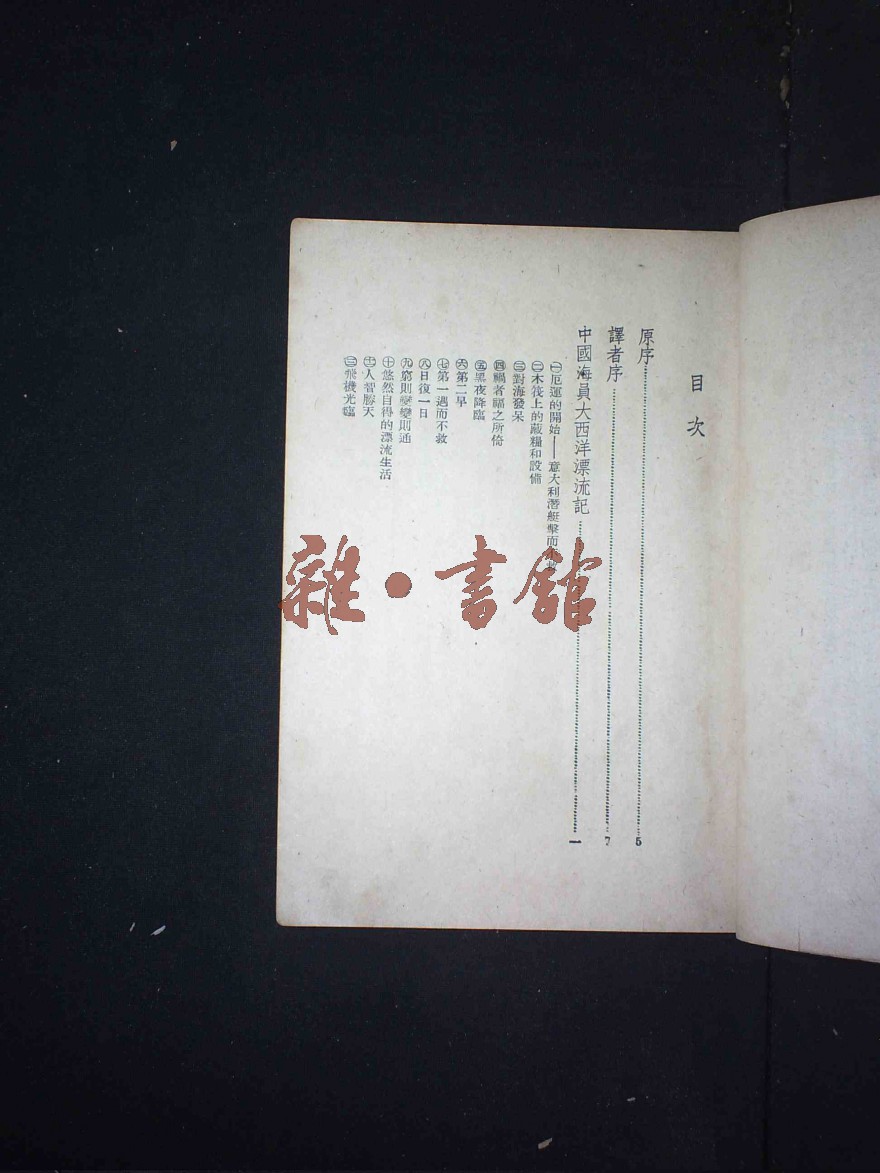 目次
原序……5
譯者序……7
中國海員大西洋漂流記……一
㊀厄運的開始——意大利潛艇擊而不救
㊁木筏上的蔽糧和設備
㊂對海發呆
㊃禍者福之所倚
㊄黑夜降臨
㊅第二早
㊆第一遇而不救
㊇日復一日
㊈窮則變變則通
㊉悠然自得的漂流生活
人智勝天
飛機光臨
雜·書館